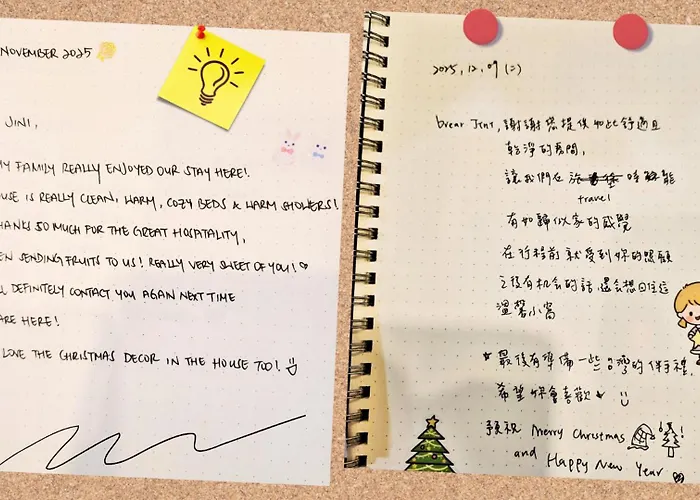 NOVEMBER 2025
JINI,
MY FAMILY REALLY ENJOYED OUR STAY HERE!
USE IS REALLY CLEAN, WARM, COZY BEDS & WARM SHOWERS!
HANKS SO MUCH FOR THE GREAT HOSPITALITY,
EN SENDING FRUITS TO US! REALLY VERY SWEET OF YOU!
L DEFINITELY CONTACT YOU AGAIN NEXT TIME
ARE HERE!
LOVE THE CHRISTMAS DECOR IN THE HOUSE TOO!
2025, 12, 09 (二)
Dear Jini, 謝謝您提供如此舒適且
乾淨的房間,
讓我們在旅 時都能
travel
有如歸似家的感覺
在行程前就受到妳的照顧
之後有机会的話還會想回住這
溫馨小窩
最後有準備一些台灣的伴手禮,
希望妳會喜歡
預祝 Merry Christmas
and Happy New Year